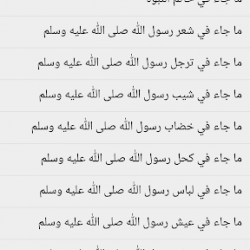 ما جاء في شعر رسول الله صلى الله عليه وسلم
ما جاء في ترجل رسول الله صلى الله عليه وسلم
ما جاء في شيب رسول الله صلى الله عليه وسلم
ما جاء في خضاب رسول الله صلى الله عليه وسلم
ما جاء في كحل رسول الله صلى الله عليه وسلم
ما جاء في لباس رسول الله صلى الله عليه وسلم
ما جاء في عيش رسول الله صلى الله عليه وسلم